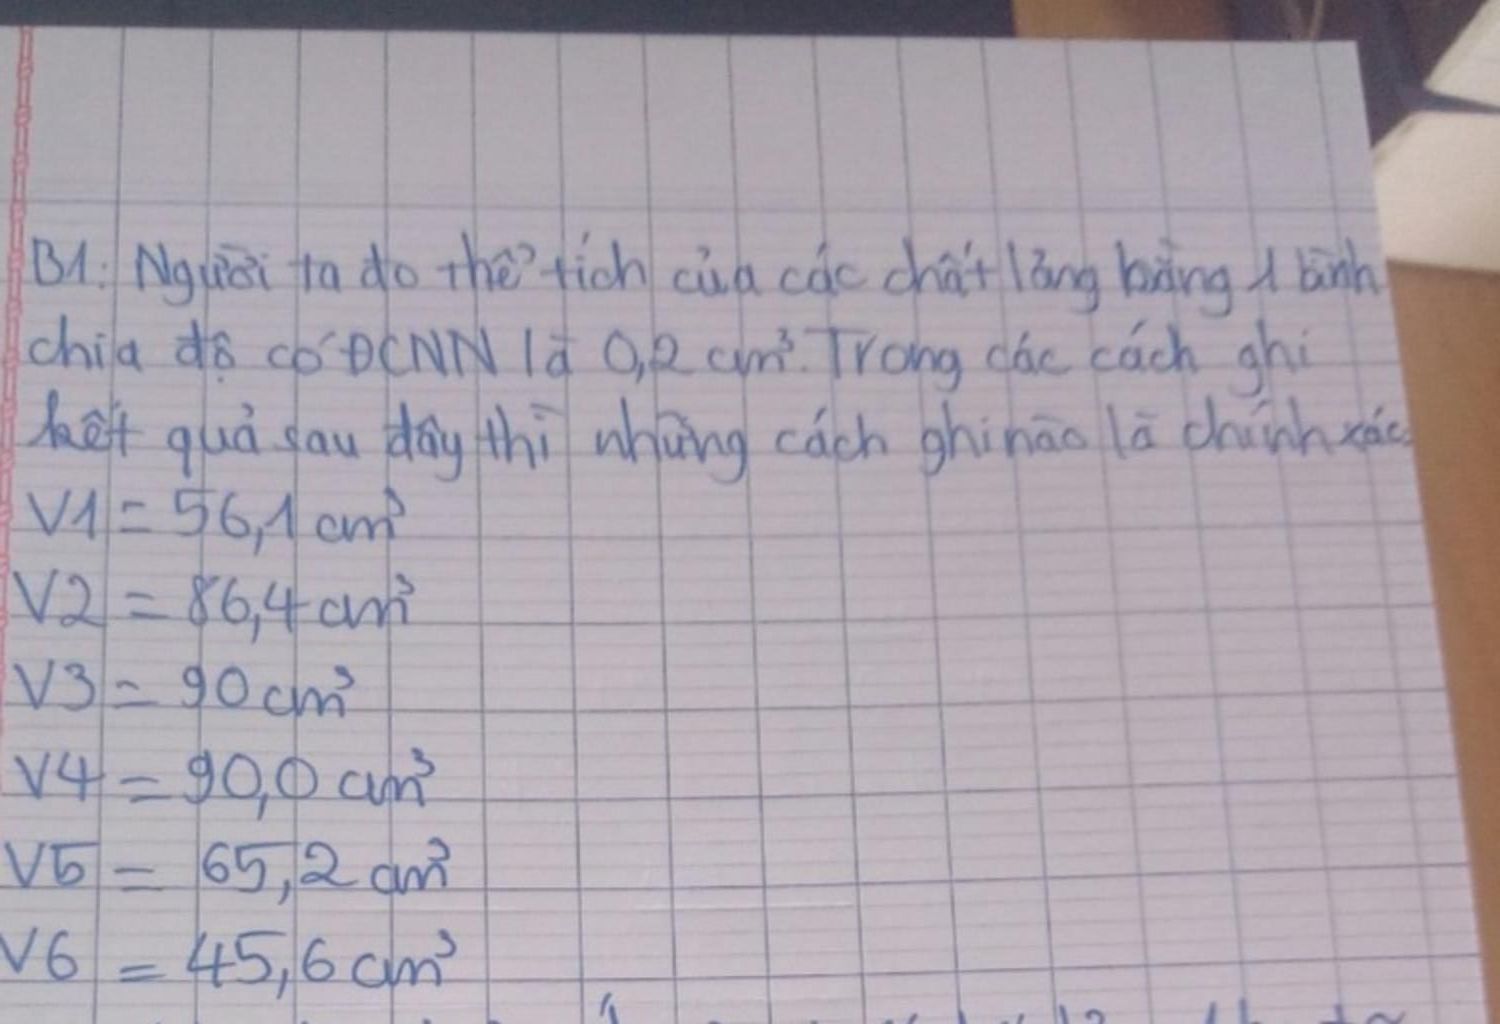 B1: Người ta đo thể tích của các chất lỏng bằng 1 bình
chia độ có ĐCNN là 0,2 cm³. Trong các cách ghi
kết quả sau đây thì những cách ghi nào là chính xác
V1 = 56,1 cm³
V2 = 86,4 cm³
V3 = 90 cm³
V4 = 90,0 cm³
V5 = 65,2 cm³
V6 = 45,6 cm³